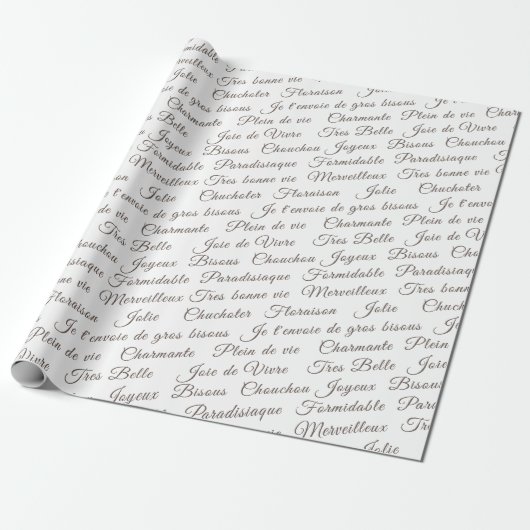 Formidable
Merveilleux Tres bonne vie
Jolie Chuchoter Floraison Jolie
Je t'envoie de gros bisous Je t'envoie
Charmante Plein de vie Charmante
Plein de vie Tres Belle Joie de Vivre
Tres Belle Bisous Chouchou
Joyeux Formidable Paradisiaque
Formidable Paradisiaque Merveilleux Tres
Merveilleux Tres bonne vie Chuchoter
Chuchoter Floraison Jolie
Je t'envoie de gros bisous
de gros bisous Plein de vie
Plein de vie Charmante
Charmante Joie de Vivre Tres Belle
Tres Belle Bisous Chouchou Joyeux
Chouchou Joyeux Formidable Paradisiaque
Formidable Paradisiaque Merveilleux
Merveilleux Tres bonne vie Chuchoter
Floraison Jolie Chuchoter Floraison
Je t'envoie de gros bisous Je t'envoie de gros
Plein de vie Charmante Plein de vie Charmante
Vivre Tres Belle Joie de Vivre Tres Belle
Joyeux Bisous Chouchou Joyeux Bisous
Paradisiaque Formidable
Merveilleux Tres
Jolie